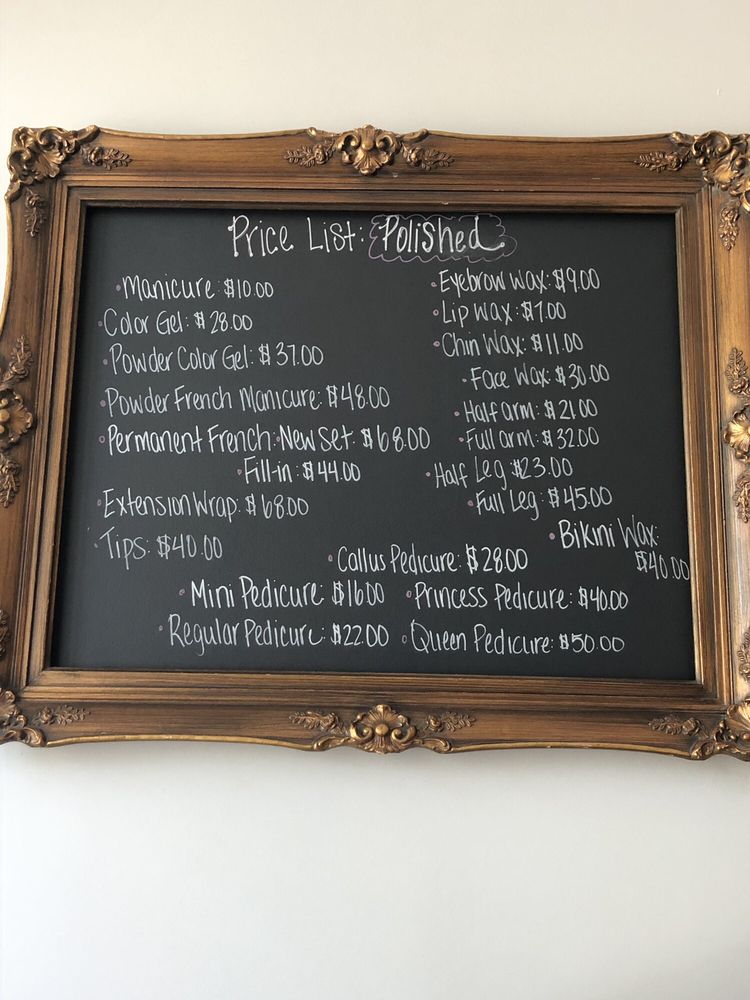 Price List: Polished
• Manicure: $10.00
• Color Gel: $28.00
• Powder Color Gel: $37.00
• Powder French Manicure: $48.00
• Permanent French: • New Set: $68.00
• Fill-in: $44.00
• Extension Wrap: $68.00
• Tips: $40.00
• Eyebrow Wax: $9.00
• Lip Wax: $7.00
• Chin Wax: $11.00
• Face Wax: $30.00
• Half arm: $21.00
• Full arm: $32.00
• Half Leg $23.00
• Full Leg: $45.00
• Bikini Wax:
$40.00
• Callus Pedicure: $28.00
• Mini Pedicure $16.00
• Princess Pedicure: $40.00
• Regular Pedicure: $22.00
• Queen Pedicure: $50.00